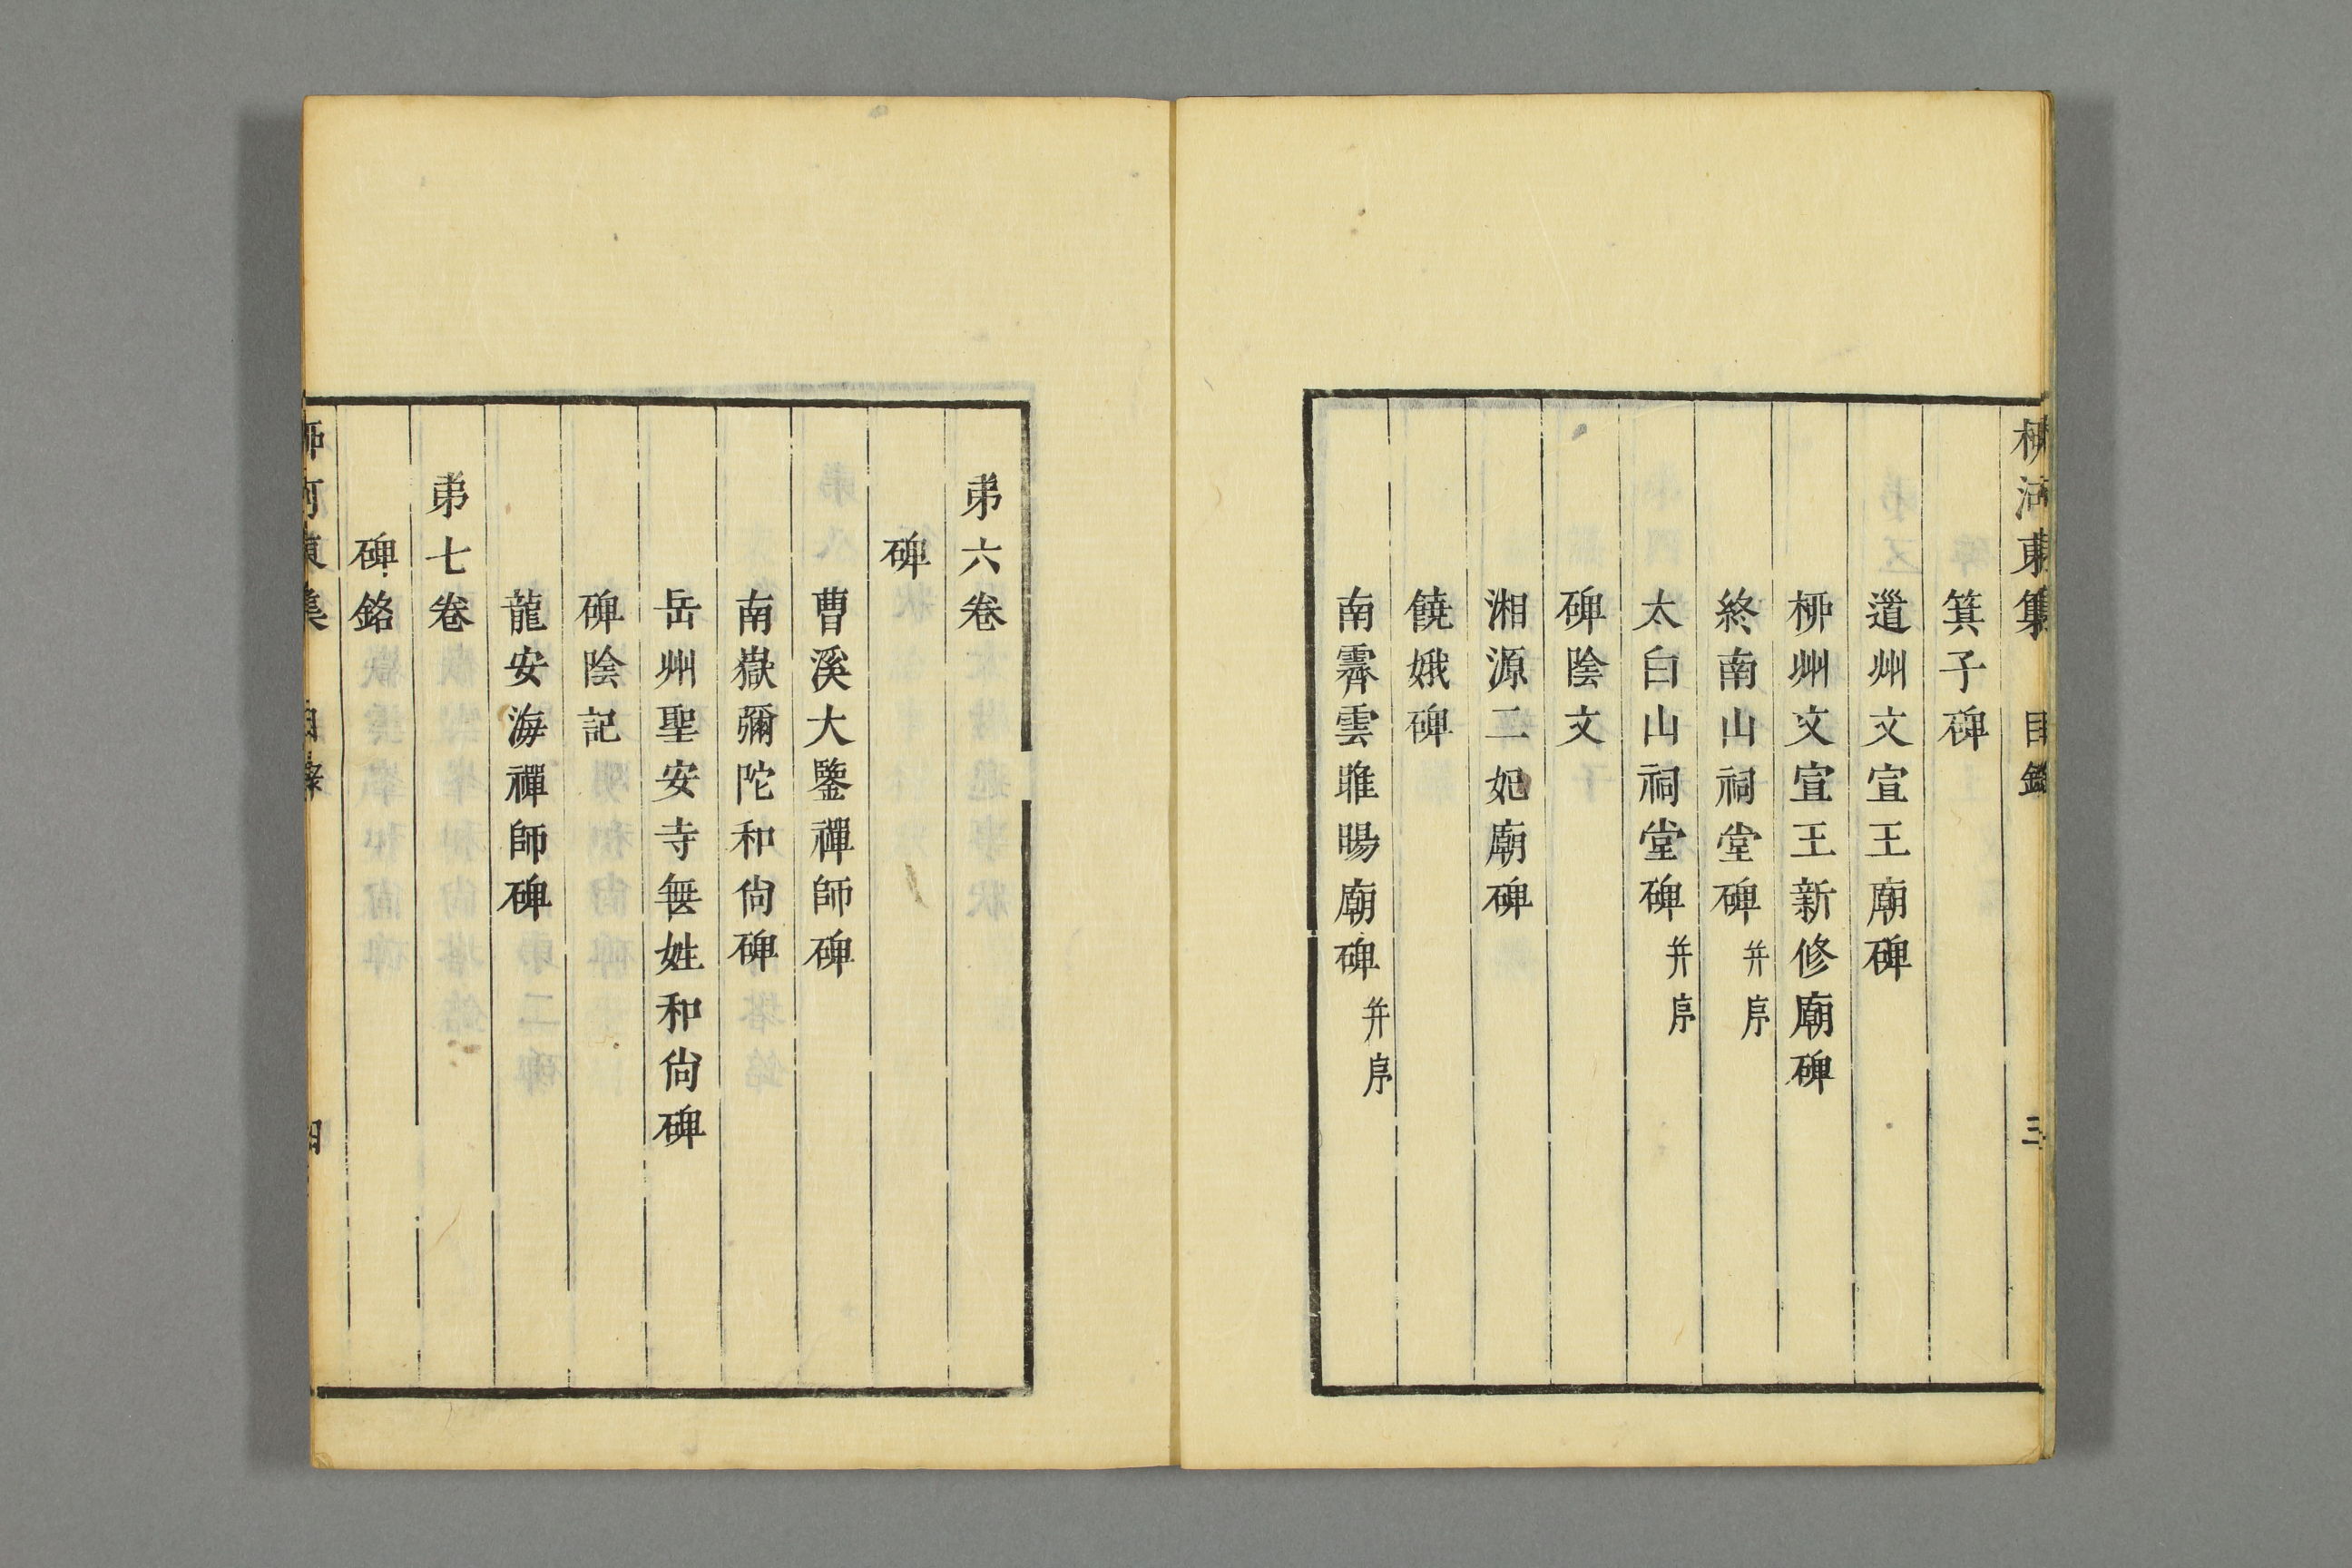 柳河東集 目錄 三
箕子碑
道州文宣王廟碑
柳州文宣王新修廟碑
終南山祠堂碑 并序
太白山祠堂碑 并序
碑陰文
湘源二妃廟碑
饒娥碑
南霽雲睢陽廟碑 并序
弟六卷
碑
曹溪大鑒禪師碑
南嶽彌陀和尙碑
岳州聖安寺無姓和尙碑
碑陰記
龍安海禪師碑
弟七卷
碑銘
柳河東集 目錄 四